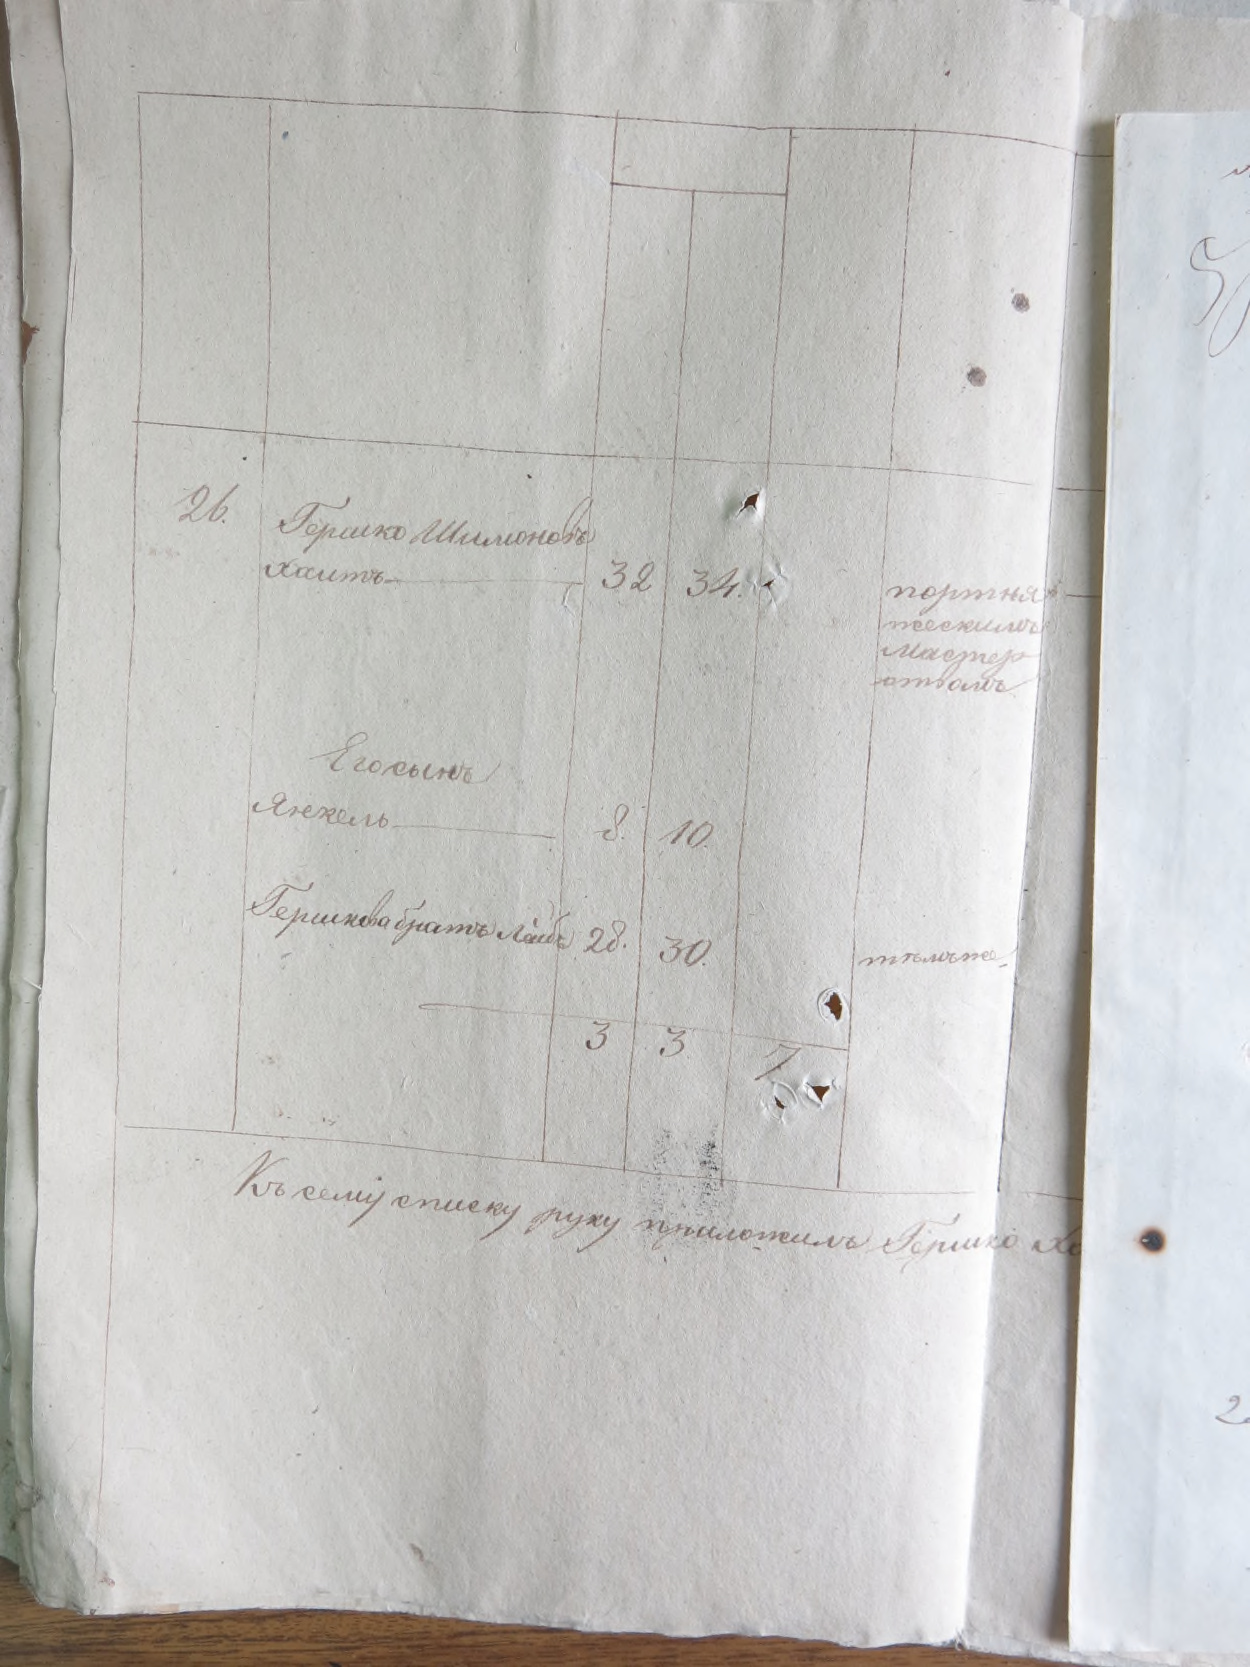 26. Гершко Шимоновъ
Хаитъ 32 34. портня
жескимъ
мастер
ствомъ
Его сынъ
Янкель 8. 10.
Гершкова братъ Лейбъ 28. 30. тѣмъ же
3 3 7
Къ сему списку руку приложилъ Гершко Ха